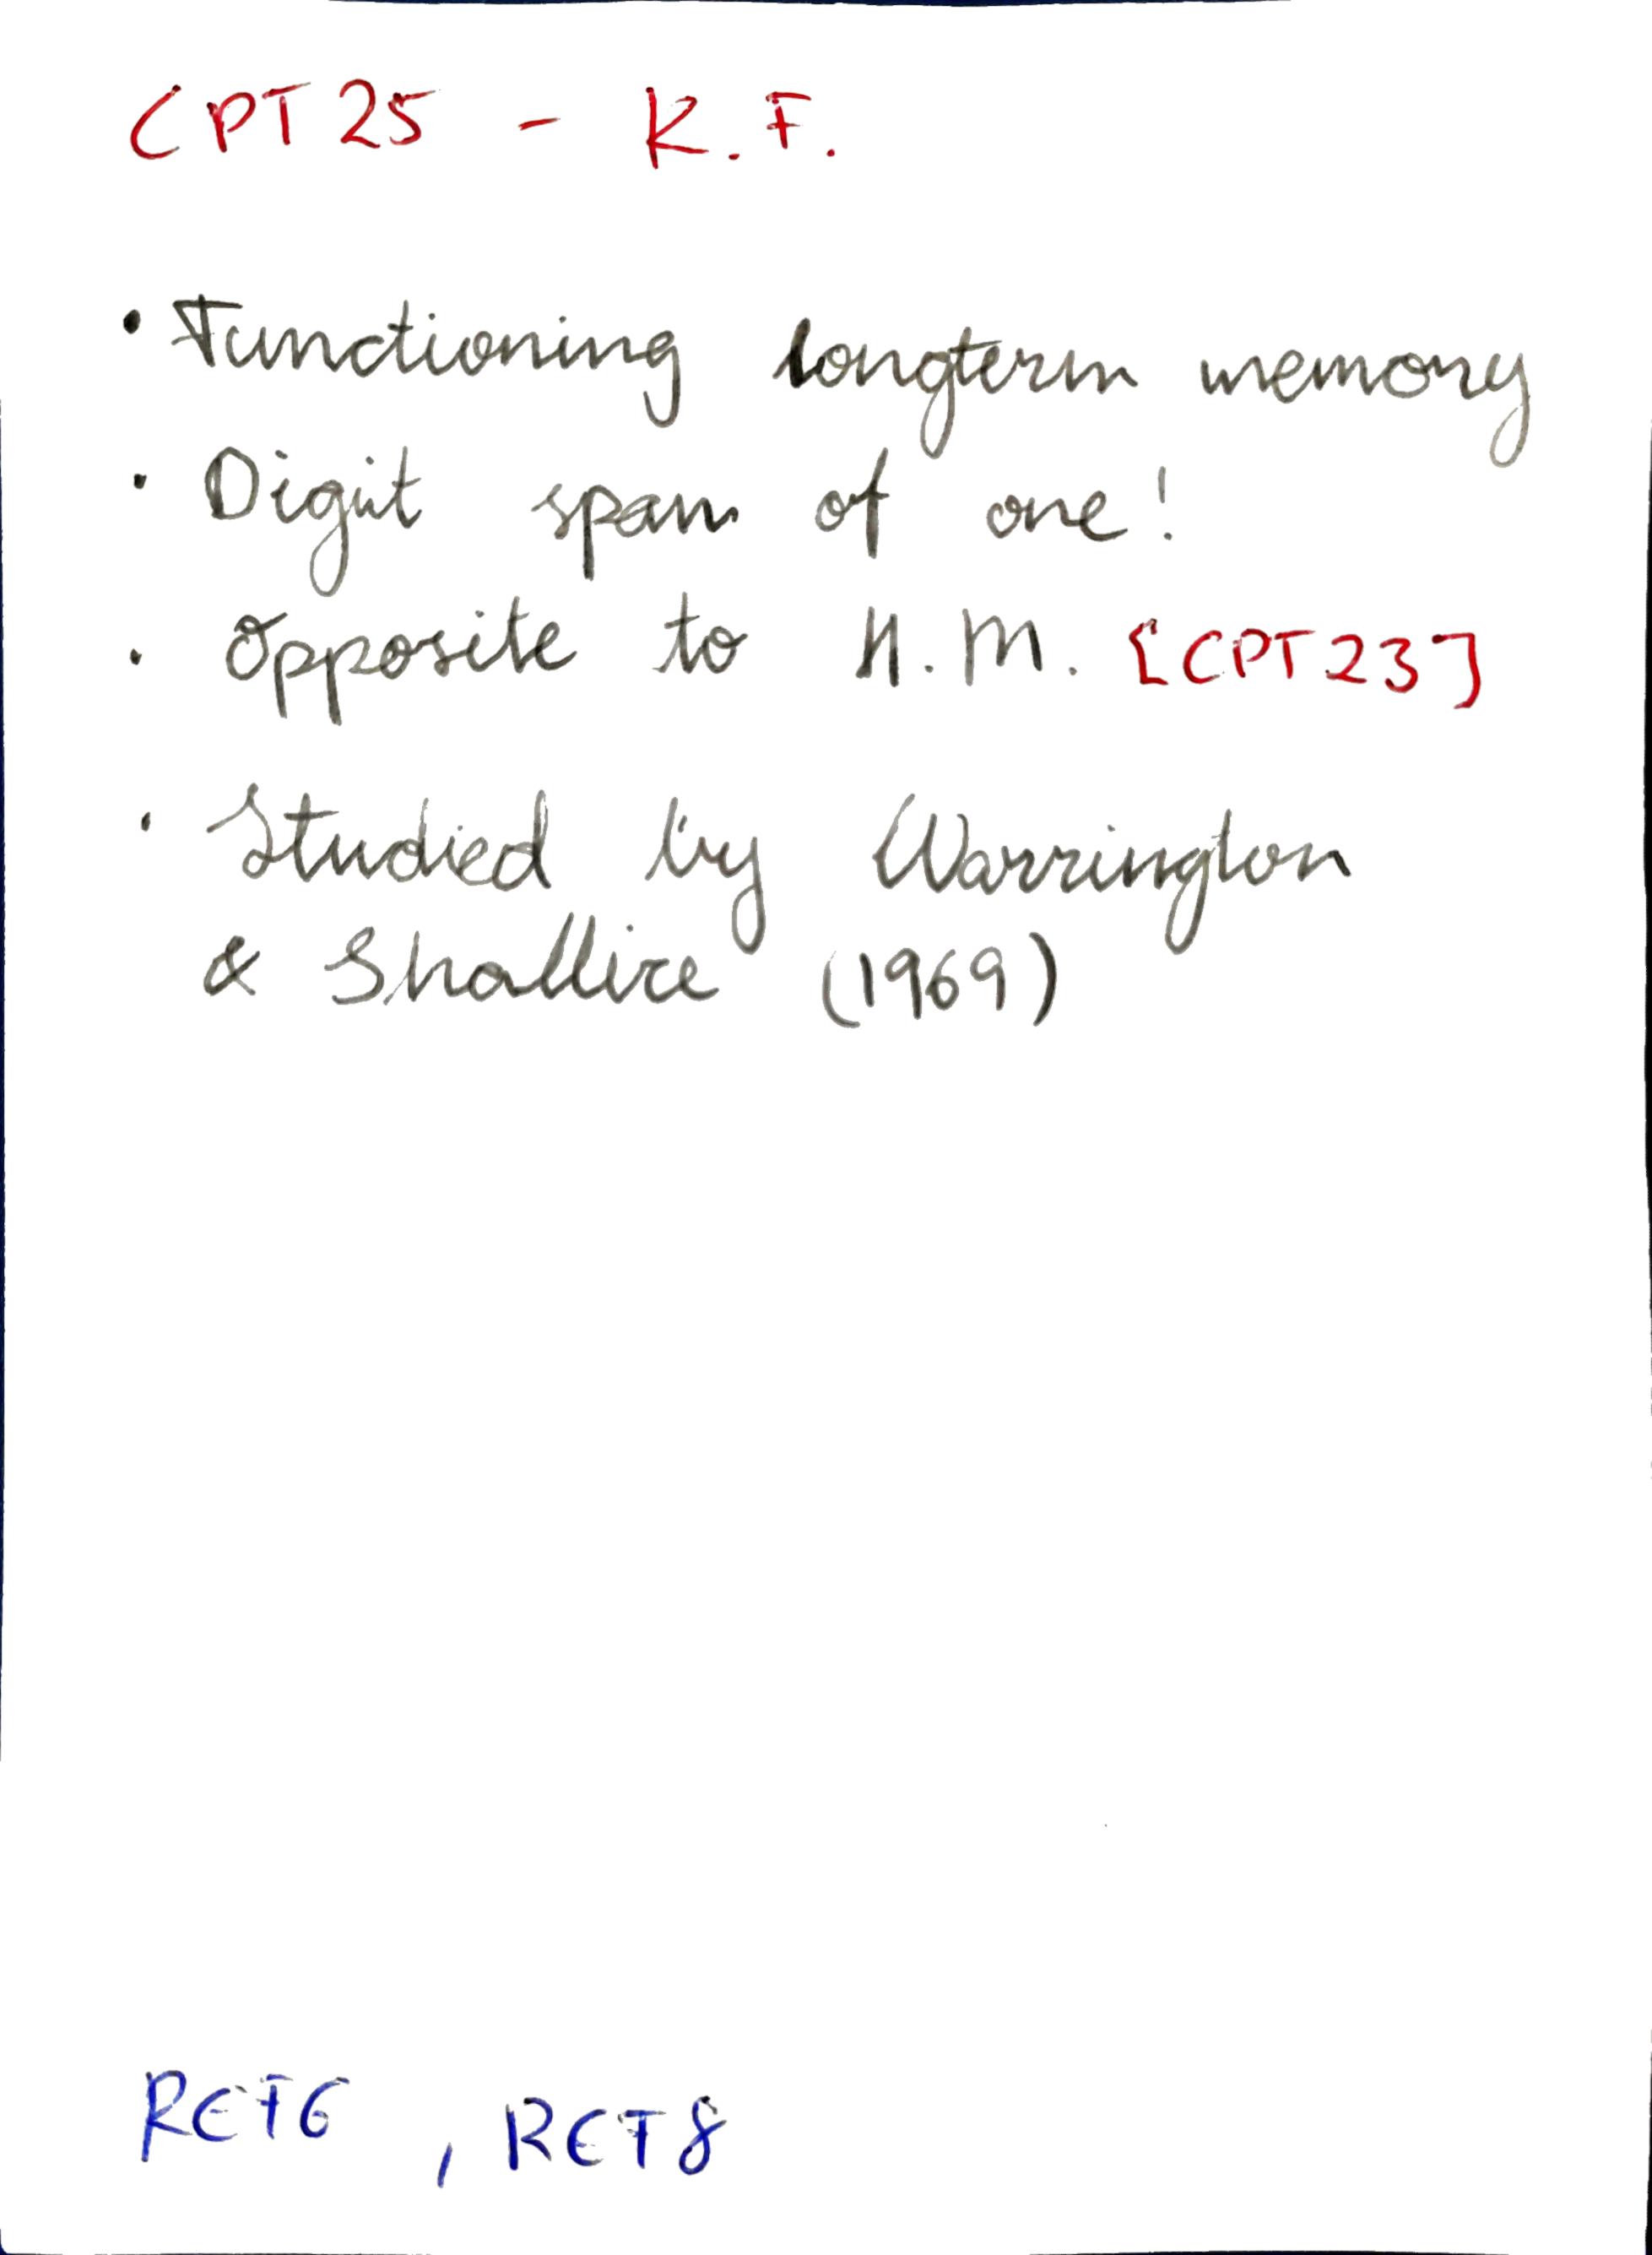 CPT25 - K.F.
• Functioning longterm memory
• Digit span of one!
• Opposite to H.M. [CPT23]
• Studied by Warrington
& Shallice (1969)
REF6 , REF8